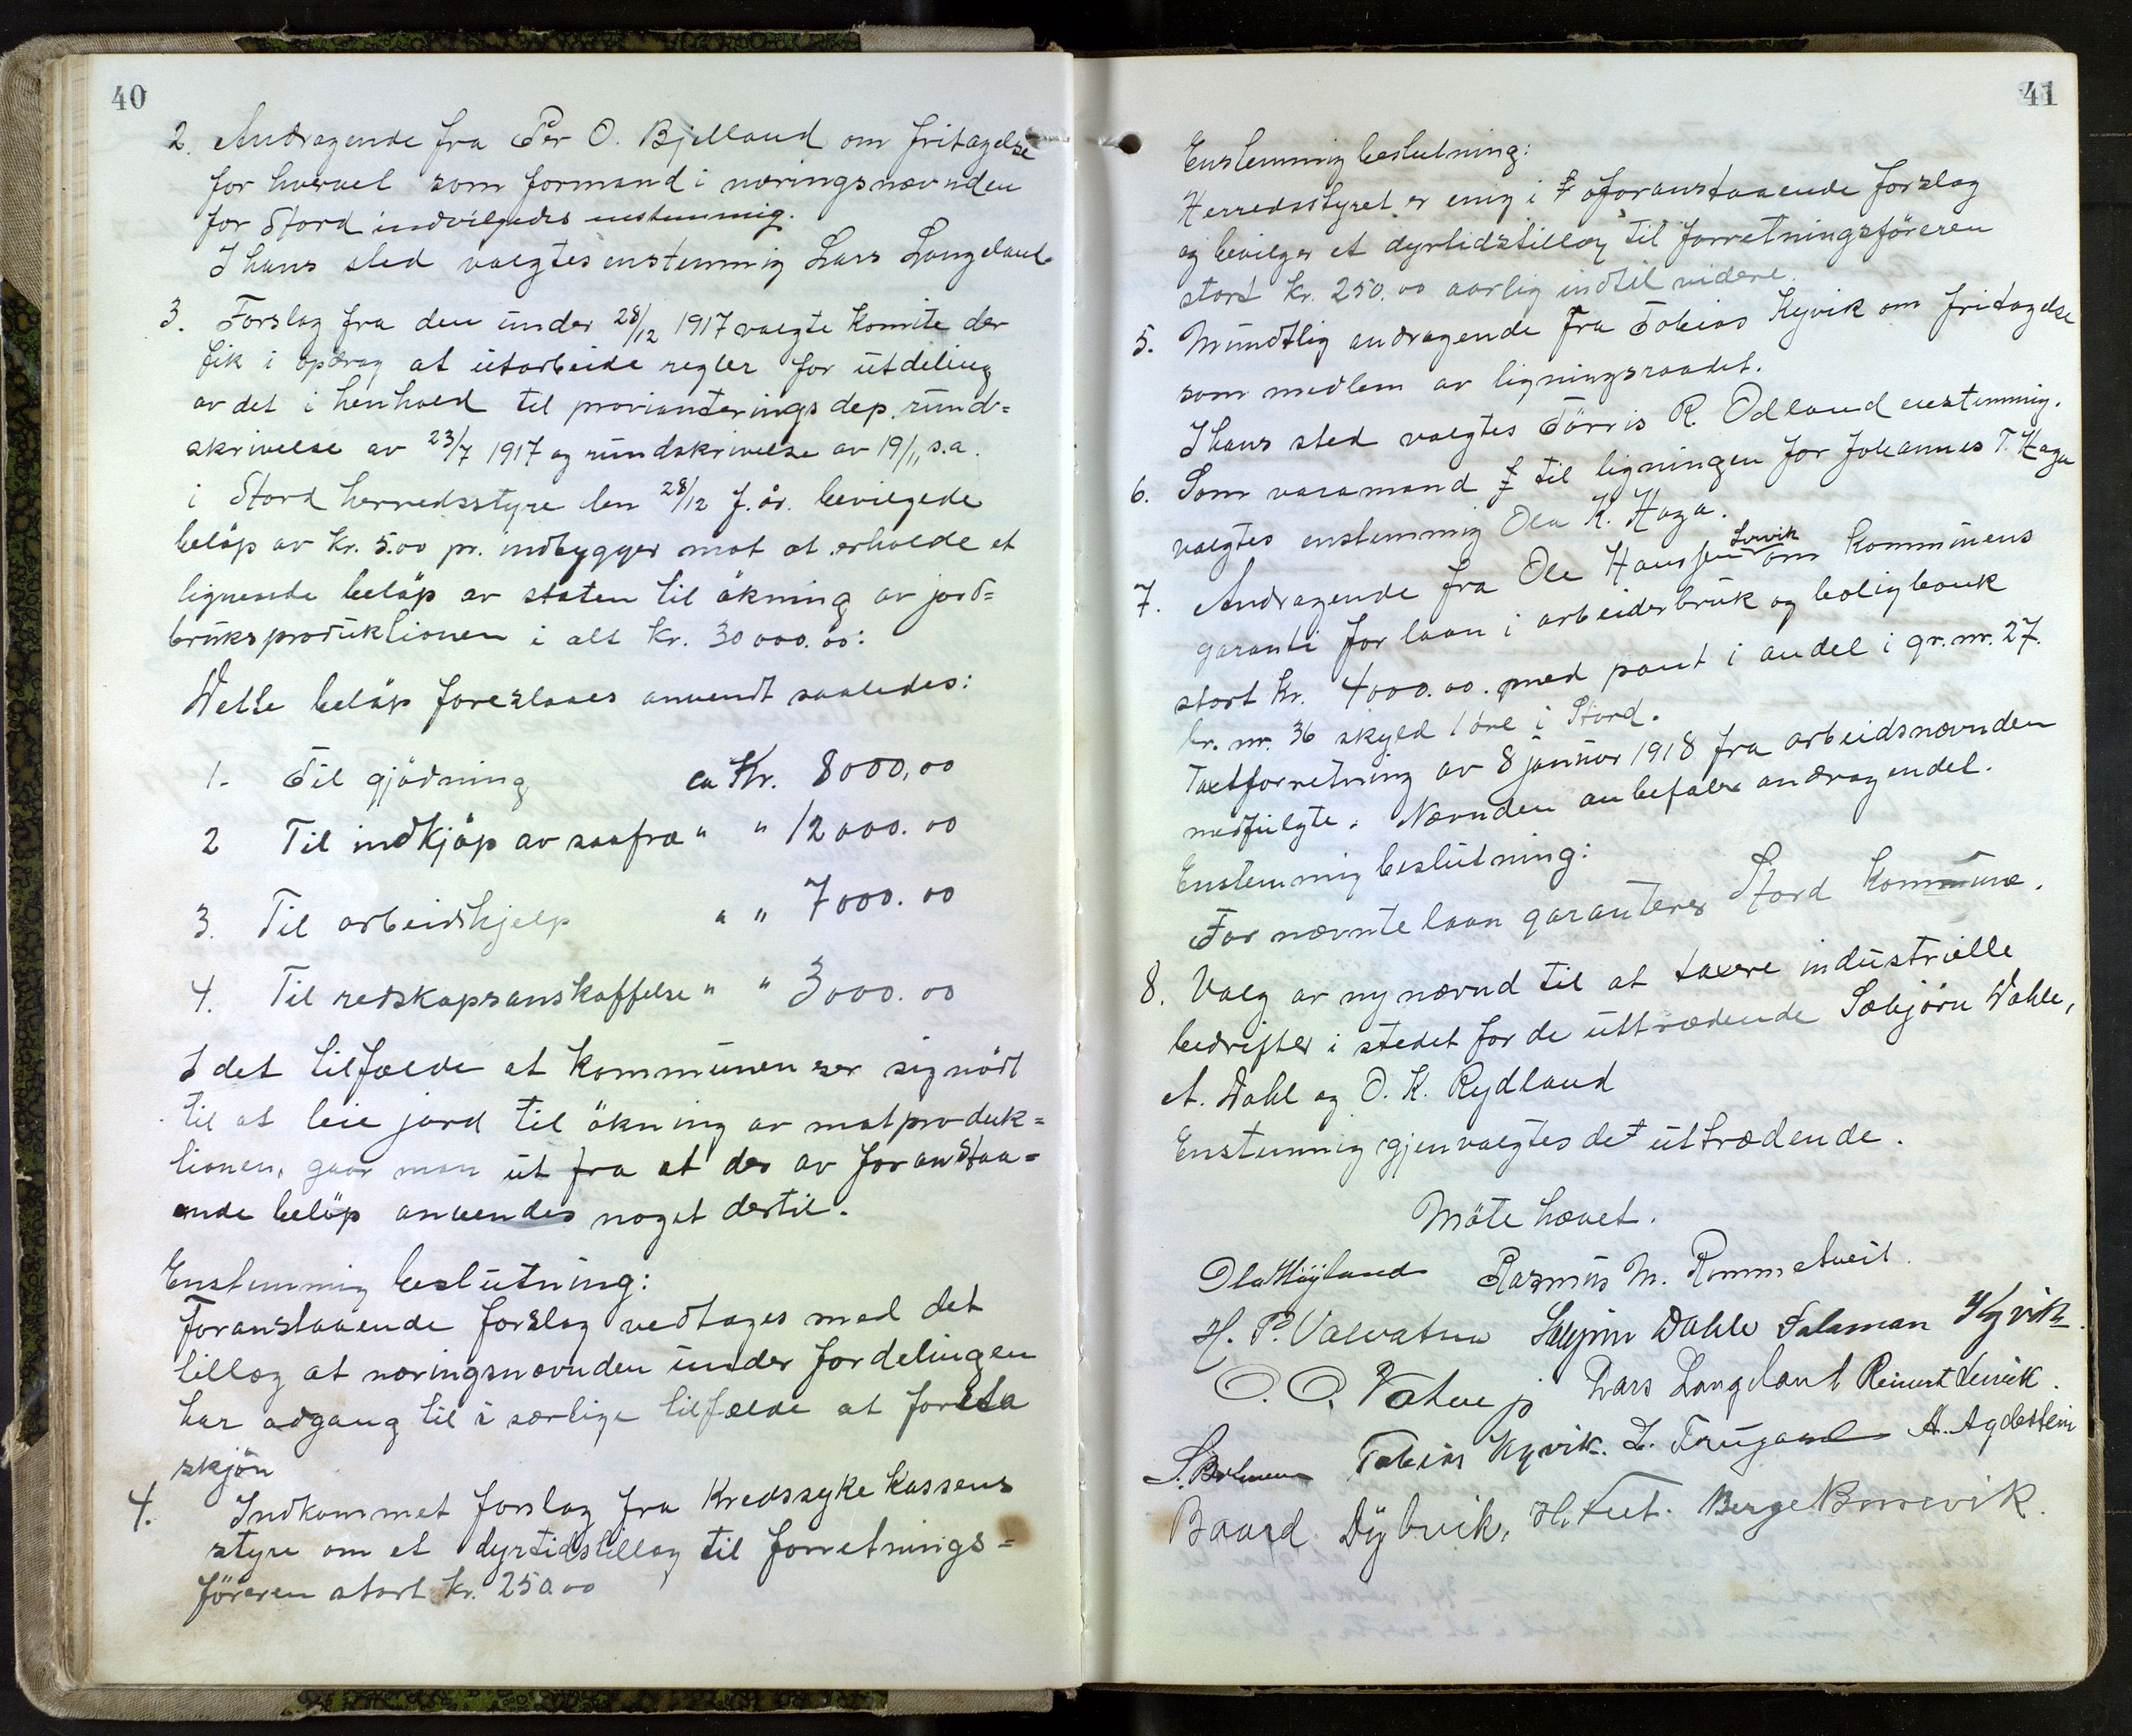 40
2. Andragende fra Per O. Bjelland om fritagelse
for hvervet som formand i næringsnævnden
for Stord indvilgedes enstemmig.
I hans sted valgtes enstemmig Lars Langeland
3. Forslag fra den under 28/12 1917 valgte komite der
fik i opdrag at utarbeide regler for utdeling
av det i henhold til provianteringsdep. rund=
skrivelse av 23/7 1917 og rundskrivelse av 19/11 s.a.
i Stord herredsstyre den 28/12 f. år. bevilgede
beløp av kr. 5.00 pr. indbygger mot at erholde et
lignende beløp av staten til økning av jord=
bruksproduktionen i alt kr. 30 000.00:
Dette beløp foreslaaes anvendt saaledes:
1. Til gjødning ca Kr. 8000,00
2 Til indkjøp av saafrø " " 12000.00
3. Til arbeidshjelp " " 7000.00
4. Til redskapsanskaffelse " " 3000.00
I det tilfælde at kommunen ser sig nødt
til at leie jord til økning av matproduk=
tionen, gaar man ut fra at der av foranstaa=
ende beløp anvendes noget dertil.
Enstemmig beslutning:
Foranstaaende forslag vedtages med det
tillæg at næringsnævnden under fordelingen
har adgang til i særlige tilfælde at foreta
skjøn
4. Indkommet forslag fra Kredssykekassens
styre om et dyrtidstillæg til forretnings=
føreren stort kr. 250.00
41
Enstemmig beslutning:
Herredsstyret er enig i foranstaaende forslag
og bevilger et dyrtidstillæg til forretningsføreren
stort kr. 250.00 aarlig indtil videre.
5. Mundtlig andragende fra Tobias Kyvik om fritagelse
som medlem av ligningsraadet.
I hans sted valgtes Tørris R. Odland enstemmig.
6. Som varamand til ligningen for Johannes T. Haga
valgtes enstemmig Ola K. Haga.
7. Andragende fra Ole Hanssen Lervik om kommunens
garanti for laan i arbeiderbruk og boligbank
stort kr. 4000.00. med pant i andel i gr. nr. 27.
br. nr. 36 skyld 1 øre i Stord.
Taxtforretning av 8 januar 1918 fra arbeidsnævnden
medfulgte. Nævnden anbefaler andragendet.
Enstemmig beslutning:
For nævnte laan garanterer Stord Kommune.
8. Valg av ny nævnd til at taxere industrielle
bedrifter i stedet for de uttrædende Sæbjørn Dahle,
A. Dahl og O. K. Rydland
Enstemmig gjenvalgtes de uttrædende.
Møte hævet.
Ola Høyland Rasmus M. Rommetveit.
H. P. Valvatna Sæbjørn Dahle Salamon Kyvik.
O. O. Vatne jr Lars Langeland Reinert Lervik.
Tobias Kyvik. A. Agdestein
Baard Dybvik, H. Tveit. Berge Børsevik.